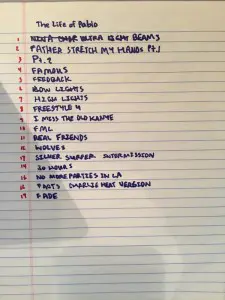 The Life of Pablo
1 ULTRA LIGHT BEAMS
2 FATHER STRETCH MY HANDS Pt.1
3 Pt.2
4 FAMOUS
5 FEEDBACK
6 LOW LIGHTS
7 HIGH LIGHTS
8 FREESTYLE 4
9 I MISS THE OLD KANYE
10 FML
11 REAL FRIENDS
12 WOLVES
13 SILVER SURFER INTERMISSION
14 30 HOURS
NO MORE PARTIES IN LA
FACTS CHARLIE HEAT VERSION
FADE